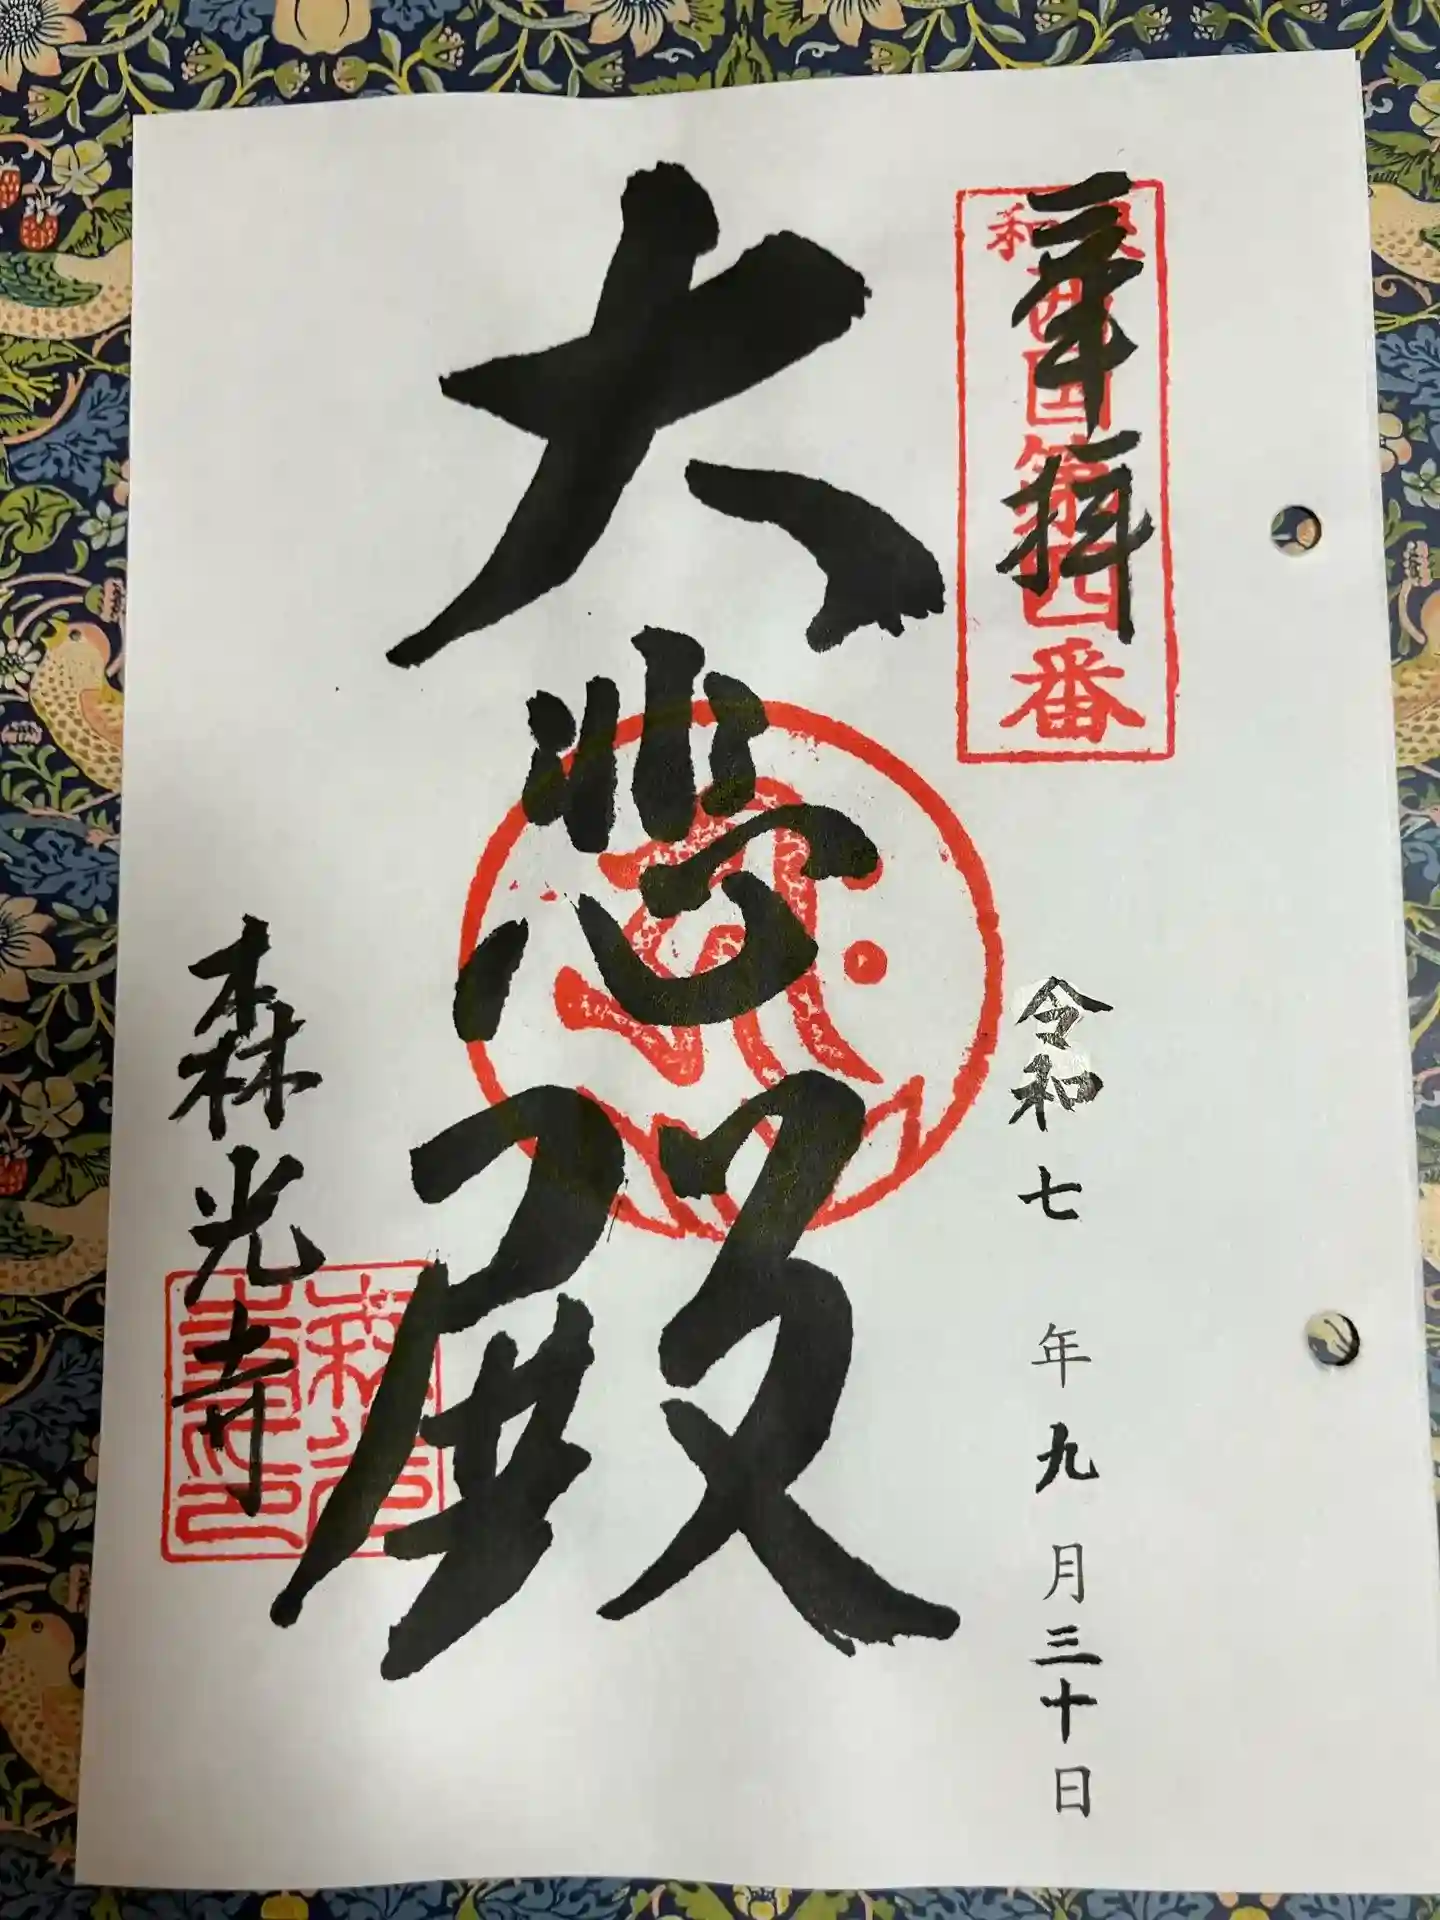 奉拝
西国第四番
令和七年九月三十日
大悲殿
森光寺